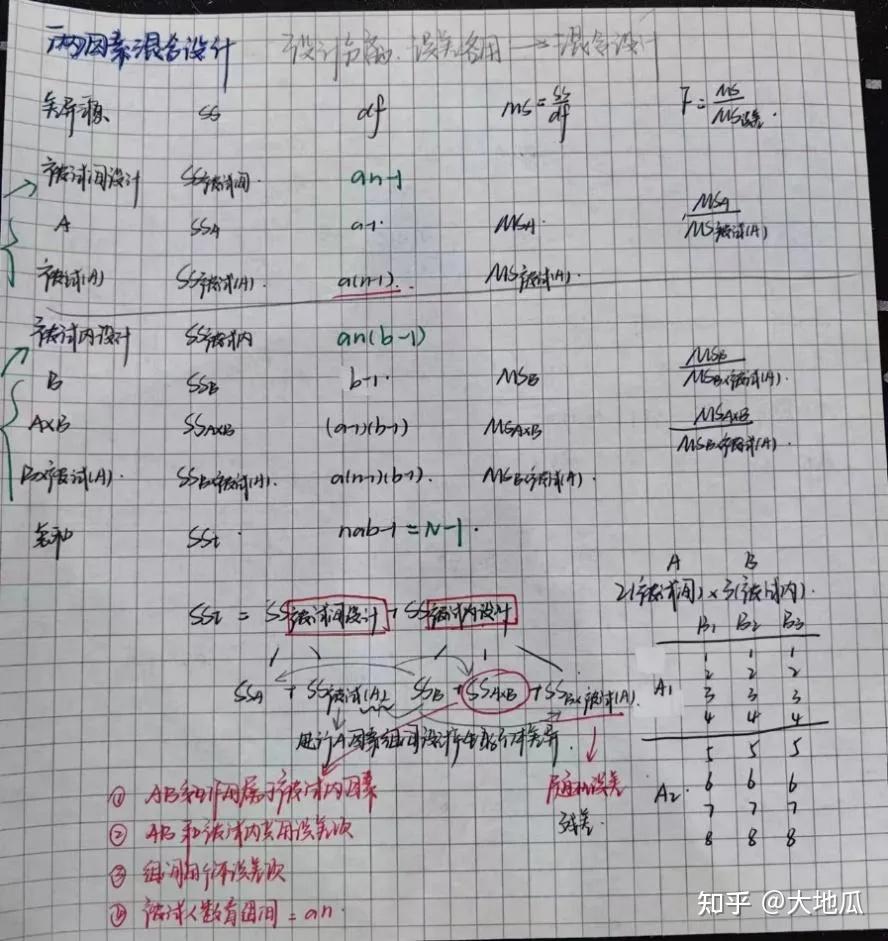 两因素混合设计 设计分配，误差各用 → 混合设计
差异源 SS df MS = SS/df F = MS/MS误差.
被试间设计 SS被试间. an-1
A SSA a-1. MSA. MSA/MS被试(A)
被试(A) SS被试(A). a(n-1). MS被试(A).
被试内设计 SS被试内 an(b-1)
B SSB b-1. MSB MSB/MSB×被试(A).
A×B SSA×B (a-1)(b-1) MSA×B MSA×B/MSB×被试(A).
B×被试(A). SSB×被试(A). a(n-1)(b-1). MSB×被试(A).
总和 SSt. nab-1 = N-1.
A B
2(被试间) × 3(被试内).
SSt = SS被试间设计 + SS被试内设计
B1 B2 B3
A1
1 1 1
2 2 2
3 3 3
4 4 4
A2.
5 5 5
6 6 6
7 7 7
8 8 8
SSA + SS被试(A) SSB + SSA×B + SSB×被试(A).
A因素组间设计 个体差异.
随机误差
残差.
① AB交互作用属于被试内因素
② AB和被试内共用误差项
③ 组间用个体误差项
④ 被试人数看组间 = an.
知乎 @大地瓜